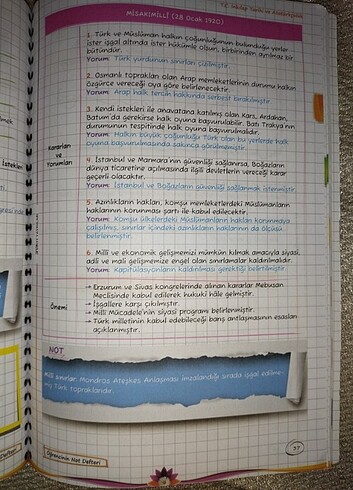 T.C. İnkılap Tarihi ve Atatürkçülük
MİSAKIMİLLİ (28 Ocak 1920)
1. Türk ve Müslüman halkın çoğunluğunun bulunduğu yerler
ister işgal altında ister hükümle olsun, birbirinden ayrılmaz bir
bütündür.
Yorum: Türk yurdunun sınırları çizilmiştir.
2. Osmanlı toprakları olan Arap memleketlerinin durumu halkın
özgürce vereceği oya göre belirlenecektir.
Yorum: Arap halk tercih hakkında serbest bırakılmıştır.
3. Kendi istekleri ile anavatana katılmış olan Kars, Ardahan,
Batum'da gerekirse halk oyuna başvurulabilir. Batı Trakya'nın
durumunun tespitinde halk oyuna başvurulmalıdır.
Yorum: Halkın büyük çoğunluğu Türk olan bu yerlerde halk
oyuna başvurulmasında sakınca görülmemiştir.
Kararları
ve
Yorumları
4. İstanbul ve Marmara'nın güvenliği sağlanırsa, Boğazların
dünya ticaretine açılmasında ilgili devletlerin vereceği karar
geçerli olacaktır.
Yorum: İstanbul ve Boğazların güvenliği sağlanmak istenmiştir.
5. Azınlıkların hakları, komşu memleketlerdeki Müslümanların
haklarının korunması şartı ile kabul edilecektir.
Yorum: Komşu ülkelerdeki Müslümanların hakları korunmaya
çalışılmış, sınırlar içindeki azınlıkların haklarının da ölçüsü
belirlenmiştir.
6. Millî ve ekonomik gelişmemizi mümkün kılmak amacıyla siyasi,
adli ve mali gelişmemize engel olan sınırlamalar kaldırılmalıdır.
Yorum: Kapitülasyonların kaldırılması gerektiği belirtilmiştir.
Önemi
→ Erzurum ve Sivas kongrelerinde alınan kararlar Mebusan
Meclisinde kabul edilerek hukuki hâle gelmiştir.
→ İşgallere karşı çıkılmıştır.
→ Millî Mücadele'nin siyasi programı belirlenmiştir.
→ Türk milletinin kabul edebileceği barış antlaşmasının esasları
açıklanmıştır.
NOT
Millî sınırlar Mondros Ateşkes Anlaşması imzalandığı sırada işgal edilme-
miş Türk topraklarıdır.
37
Öğrencinin Not Defteri